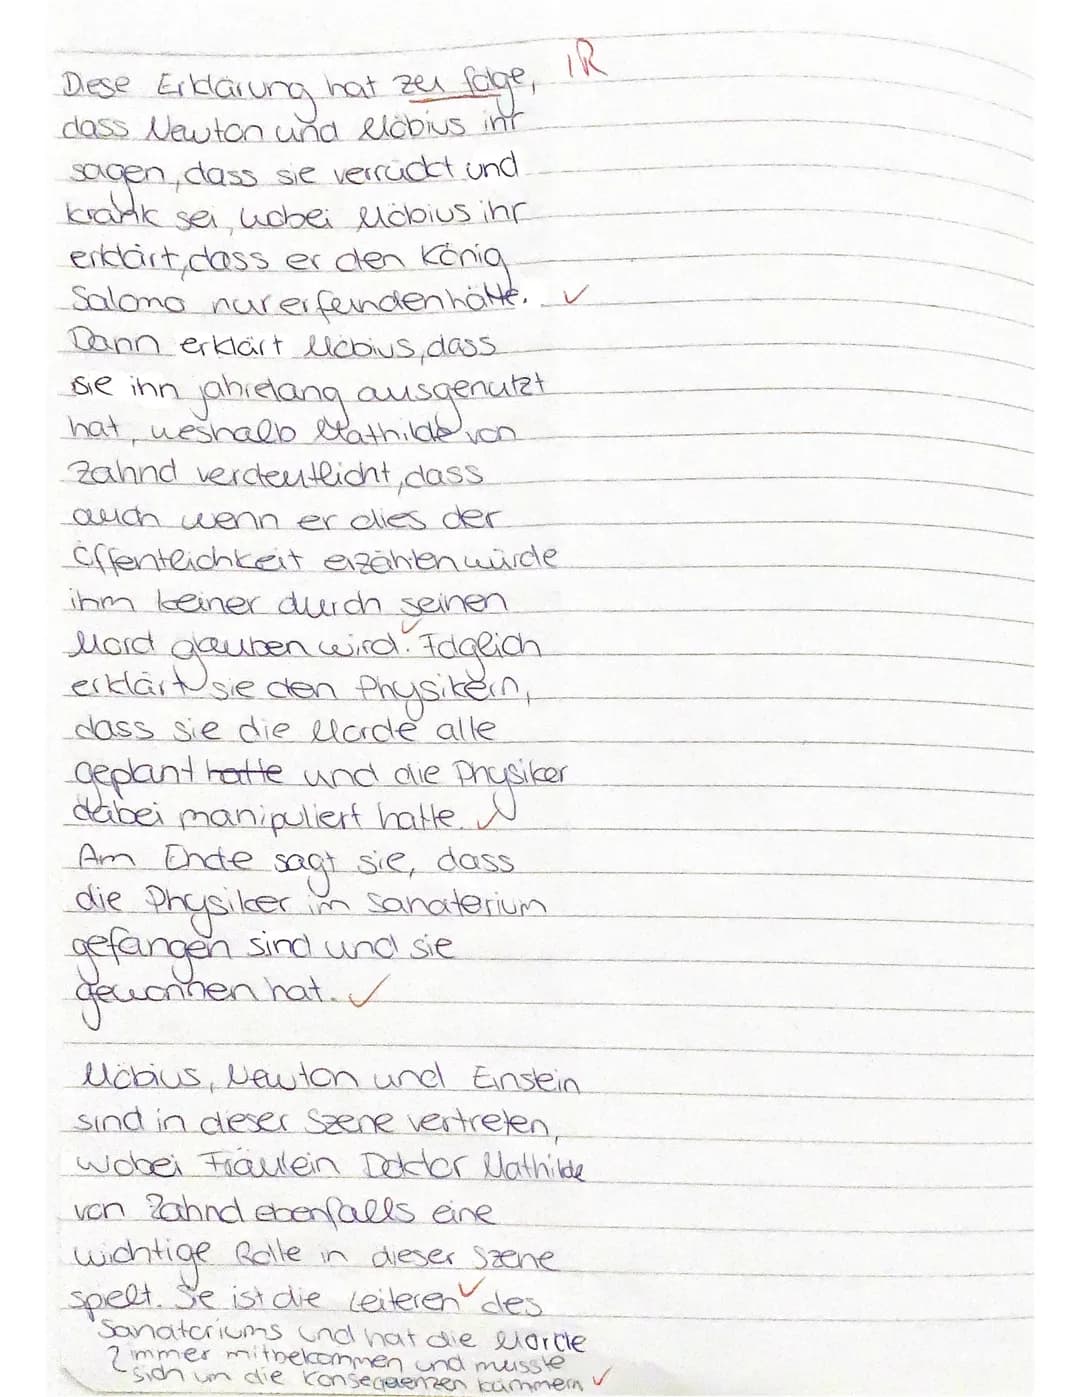 Diese Erklärung hat zu folge, 1R
dass Newton und Möbius ihr
sagen, dass sie verrückt und
krank sei, wobei Möbius ihr
erklärt, dass er den König
Salomo nur erfunden hätte. ✓
Dann erklärt Möbius, dass
sie ihn jahrelang ausgenutzt
hat, weshalb Mathilde von
Zahnd verdeutlicht, dass
auch wenn er dies der
Öffentlichkeit erzählen würde
ihm keiner durch seinen
Mord glauben wird. ✓ Folglich
erklärt sie den Physikern,
dass sie die Morde alle
geplant hatte und die Physiker
dabei manipuliert hatte. ✓
Am Ende sagt sie, dass
die Physiker im Sanaterium
gefangen sind und sie
gewonnen hat. ✓
Möbius, Newton und Einstein
sind in dieser Szene vertreten,
wobei Fräulein Doktor Mathilde
von Zahnd ebenfalls eine
wichtige Rolle in dieser Szene
spielt. Sie ist die Leiteren ✓ des
Sanatoriums und hat die Morde
immer mitbekommen und musste
sich um die Konsequenzen kümmern ✓